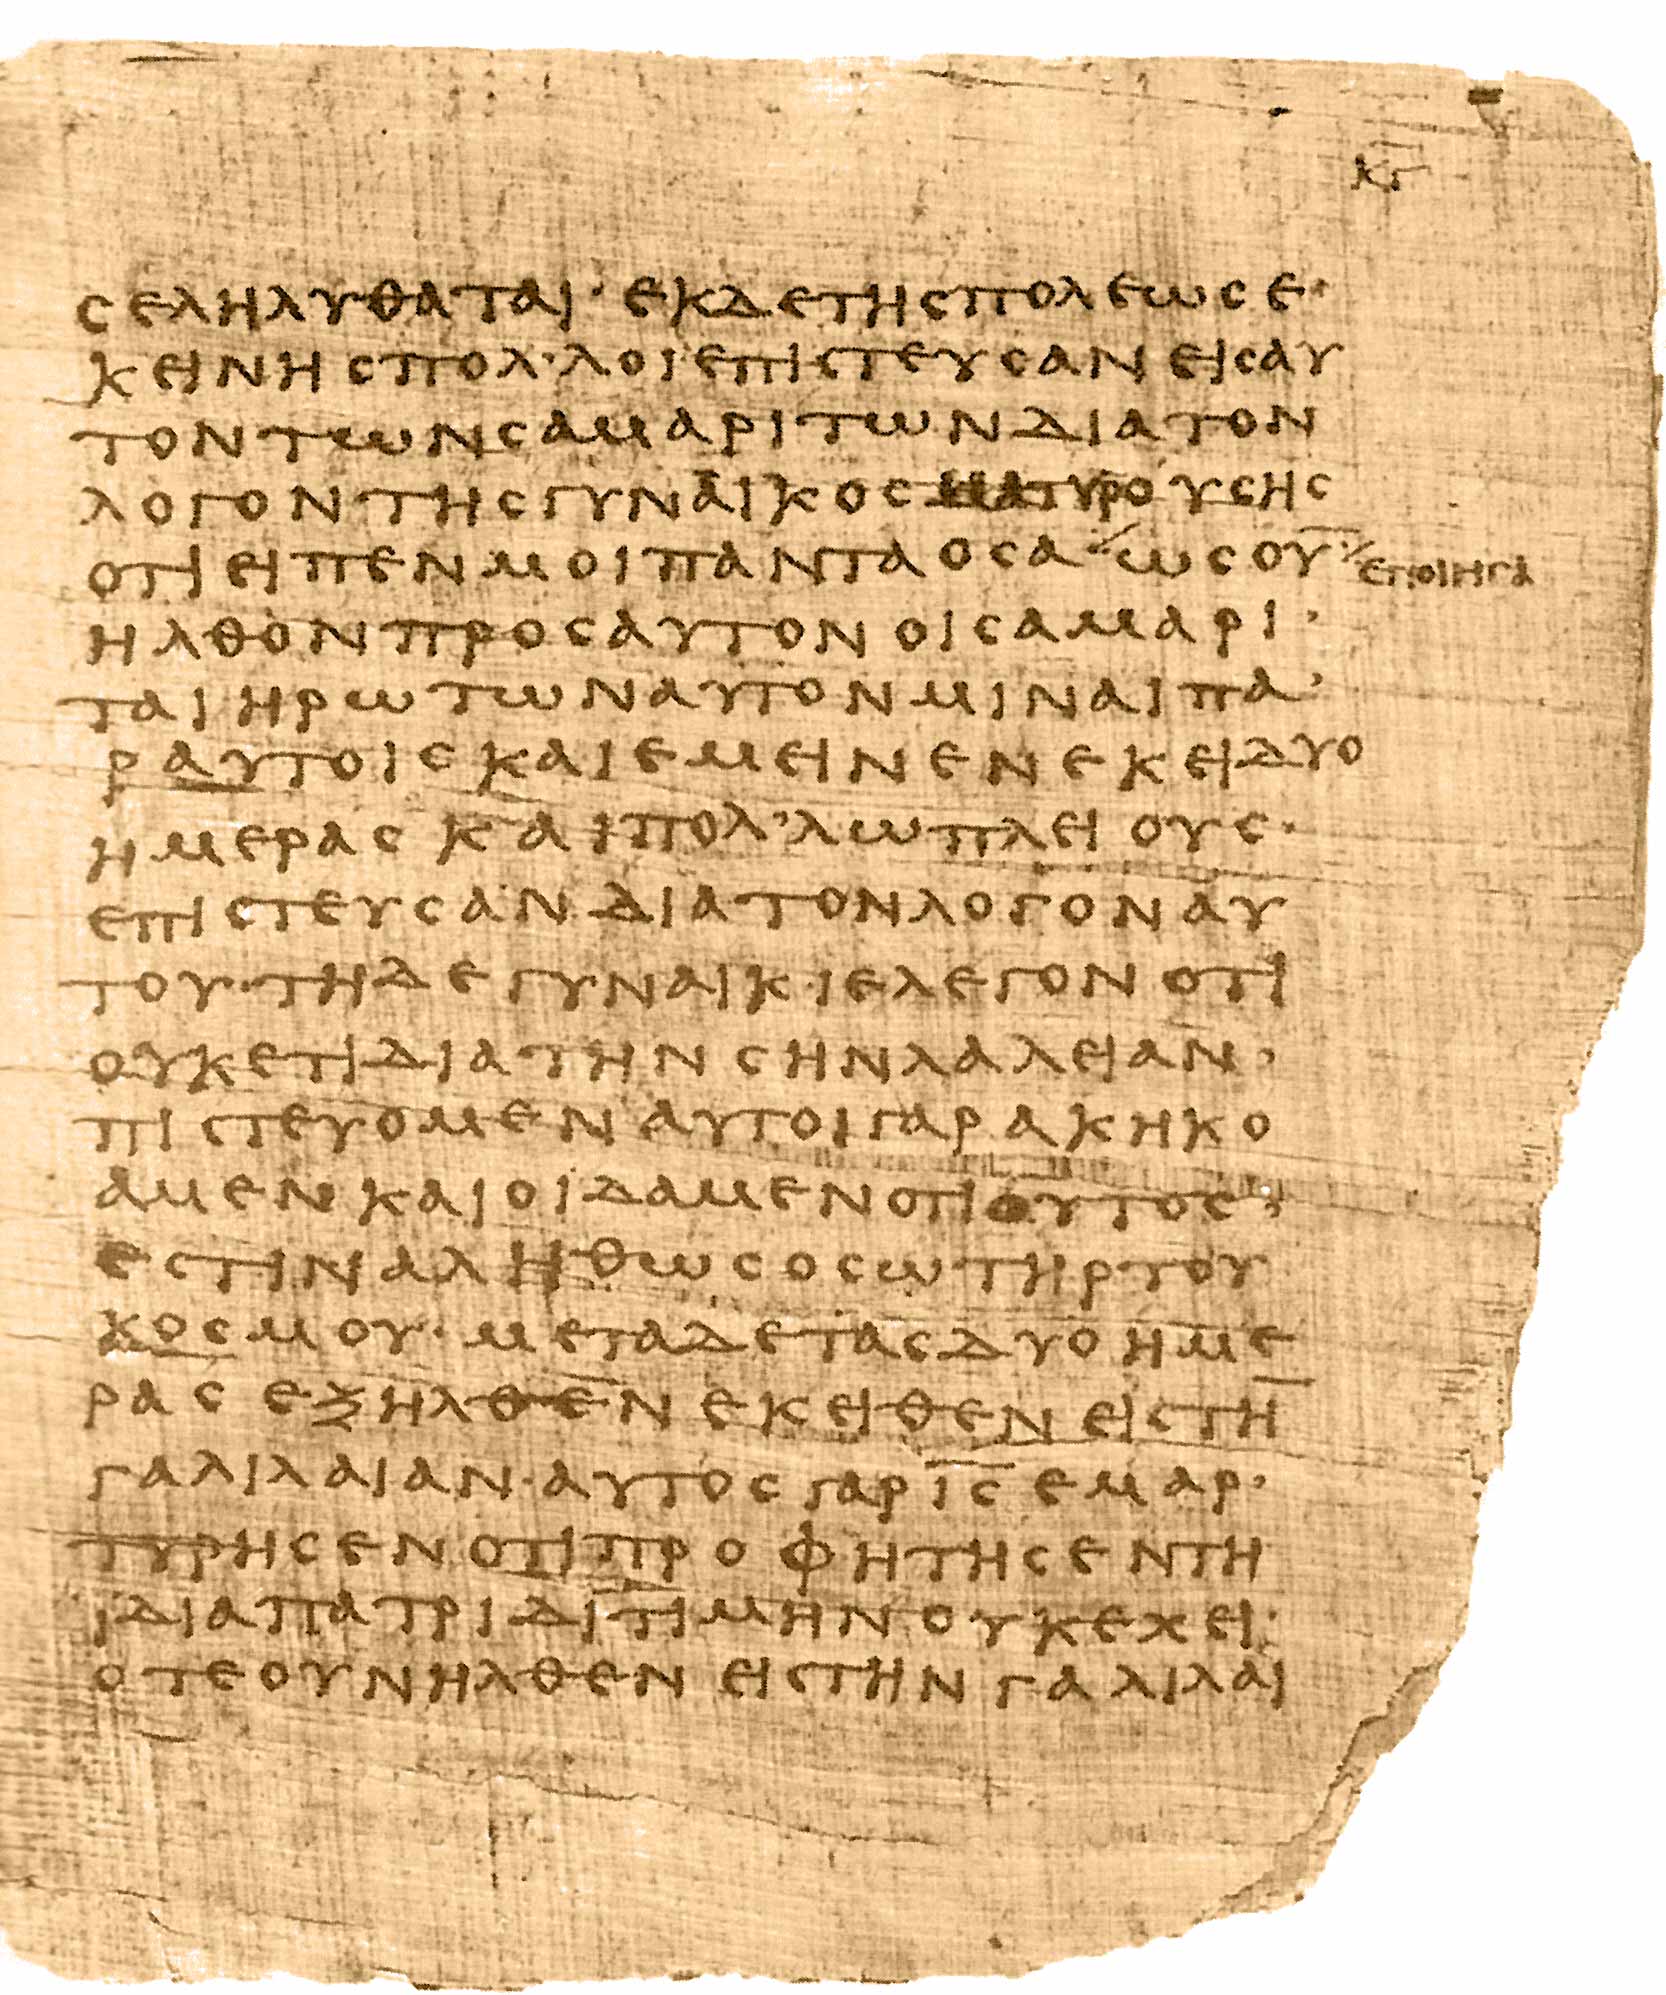 ΚΓ
ϹΕΛΗΛΥΘΑΤΑΙ· ΕΚΔΕΤΗϹΠΟΛΕωϹΕ·
ΚΕΙΝΗϹΠΟΛ·ΛΟΙΕΠΙϹΤΕΥϹΑΝΕΙϹΑΥ
ΤΟΝΤωΝϹΑΜΑΡΙΤωΝΔΙΑΤΟΝ
ΛΟΓΟΝΤΗϹΓΥΝΑΙΚΟϹΜΑΤΥΡΟΥϹΗϹ
ΟΤΙΕΙΠΕΝΜΟΙΠΑΝΤΑΟϹΑ⸍ωϹΟΥ̅·⸍ΕΠΟΙΗϹΑ
ΗΛΘΟΝΠΡΟϹΑΥΤΟΝΟΙϹΑΜΑΡΙ·
ΤΑΙΗΡωΤωΝΑΥΤΟΝΜΙΝΑΙΠΑ·
ΡΑΥΤΟΙϹΚΑΙΕΜΕΙΝΕΝΕΚΕΙΔΥΟ
ΗΜΕΡΑϹΚΑΙΠΟΛ·ΛωΠΛΕΙΟΥϹ·
ΕΠΙϹΤΕΥϹΑΝΔΙΑΤΟΝΛΟΓΟΝΑΥ
ΤΟΥ·ΤΗΔΕΓΥΝΑΙΚΙΕΛΕΓΟΝΟΤΙ
ΟΥΚΕΤΙΔΙΑΤΗΝϹΗΝΛΑΛΕΙΑΝ·
ΠΙϹΤΕΥΟΜΕΝΑΥΤΟΙΓΑΡΑΚΗΚΟ
ΑΜΕΝΚΑΙΟΙΔΑΜΕΝΟΤΙΟΥΤΟϹ·
ΕϹΤΙΝΑΛΗΘωϹΟϹωΤΗΡΤΟΥ
ΚΟϹΜΟΥ·ΜΕΤΑΔΕΤΑϹΔΥΟΗΜΕ
ΡΑϹΕΞΗΛΘΕΝΕΚΕΙΘΕΝΕΙϹΤΗ̅
ΓΑΛΙΛΑΙΑΝ·ΑΥΤΟϹΓΑΡΙ̅Ϲ̅ΕΜΑΡ·
ΤΥΡΗϹΕΝΟΤΙΠΡΟΦΗΤΗϹΕΝΤΗ
ΙΔΙΑΠΑΤΡΙΔΙΤΙΜΗΝΟΥΚΕΧΕΙ·
ΟΤΕΟΥΝΗΛΘΕΝΕΙϹΤΗΝΓΑΛΙΛΑΙ